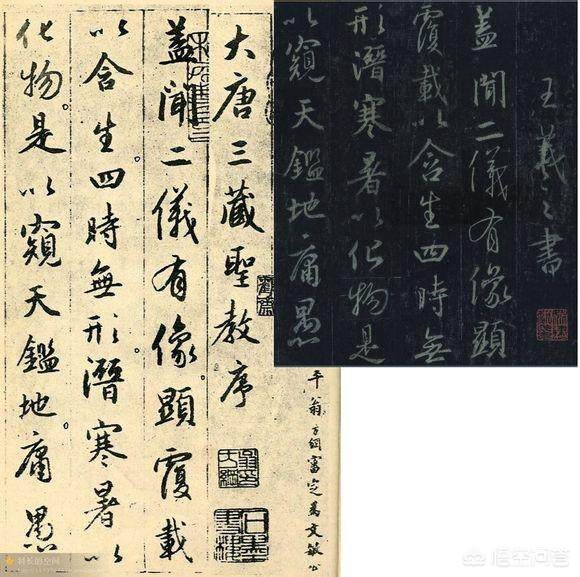 王羲之書
蓋聞二儀有像顯
覆載以含生四時無
形潛寒暑以化物是
以窺天鑑地庸愚
平翁方綱審定為文敏公
大唐三藏聖教序
蓋聞二儀有像顯覆載
以含生四時無形潛寒暑以
化物是以窺天鑑地庸愚
特长的空间
悟空问答